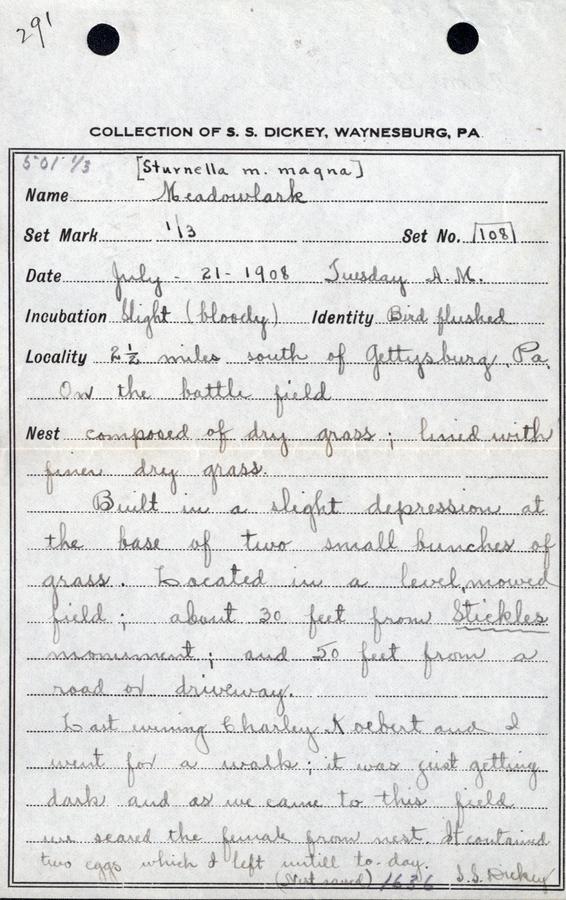 291
COLLECTION OF S. S. DICKEY, WAYNESBURG, PA.
501 1/3 [Sturnella m. magna]
Name Meadowlark
Set Mark 1/3 Set No. 108
Date July - 21 - 1908 Tuesday A.M.
Incubation Slight (bloody) Identity Bird flushed
Locality 2½ miles south of Gettysburg, Pa.
On the battle field
Nest composed of dry grass; lined with
finer dry grass.
Built in a slight depression at
the base of two small bunches of
grass. Located in a level, mowed
field; about 30 feet from Stickles
monument; and 50 feet from a
road or driveway.
Last evening Charley Koebert and I
went for a walk; it was just getting
dark and as we came to this field
we scared the female from nest. It contained
two eggs which I left untill to-day.
(Nest saved) 1636 S.S. Dickey